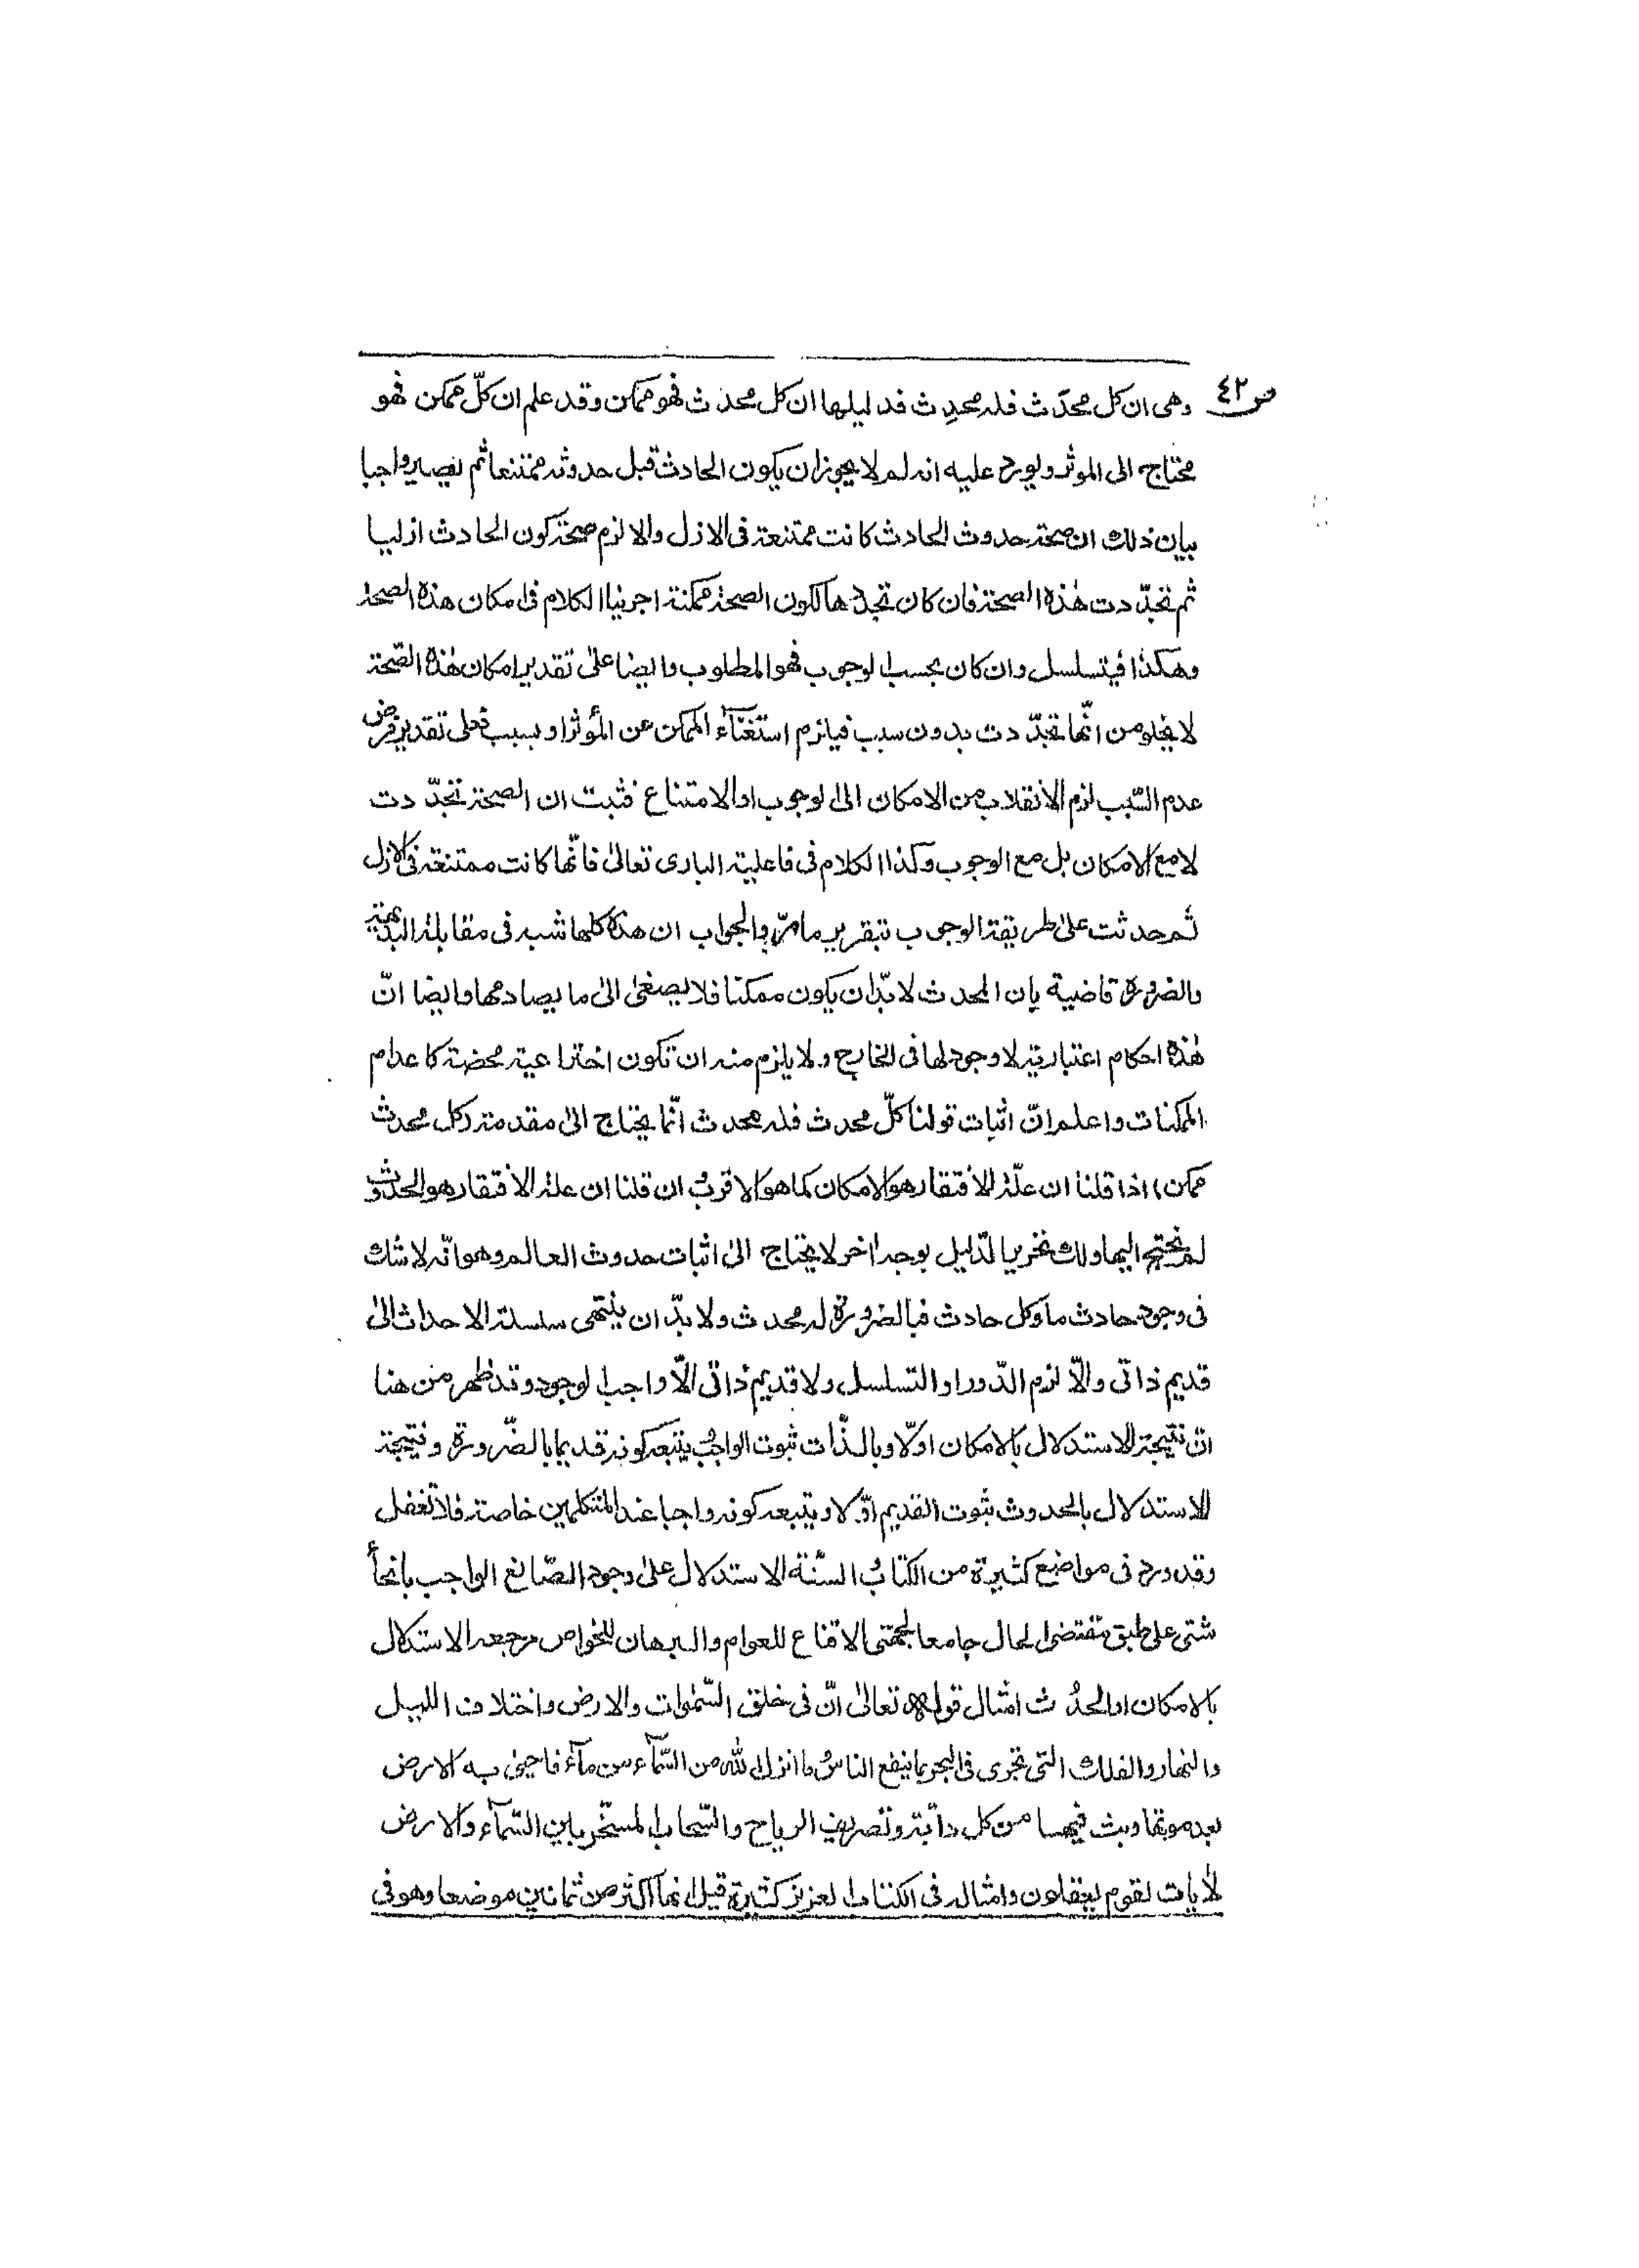 ص ٤٢
وهى ان كل محدَث فله محدِث فدليلها ان كل محدث فهو ممكن وقد علم ان كلّ ممكن فهو
محتاج الى الموثر ويورد عليه انه لم لا يجوز ان يكون الحادث قبل حدوثه ممتنعا ثم يصير واجبا
بيان ذلك ان صحة حدوث الحادث كانت ممتنعة فى الازل والا لزم صحة كون الحادث ازليا
ثم تجدّدت هٰذه الصحة فان كان تجددها لكون الصحة ممكنة اجرينا الكلام فى امكان هذه الصحة
وهكذا فيتسلسل وان كان بحسب الوجوب فهو المطلوب وايضا علىٰ تقدير امكان هٰذه الصّحة
لا يخلو من انّها تجدّدت بدون سبب فيلزم استغنآء الممكن عن المؤثر او بسبب فعلى تقدير فرض
عدم السّبب لزم الانقلاب من الامكان الى الوجوب او الامتناع فثبت ان الصحة تجدّدت
لا مع الامكان بل مع الوجوب وكذا الكلام فى فاعلية البارى تعالىٰ فانّها كانت ممتنعة فى الازل
ثم حدثت علىٰ طريقة الوجوب بتقرير ما مرّ والجواب ان هذه كلها شبه فى مقابلة البديهة
والضرورة قاضية بان المحدث لا بدّ ان يكون ممكنا فلا يصغىٰ الىٰ ما يصادمها وايضا انّ
هٰذه احكام اعتبارية لا وجود لها فى الخارج ولا يلزم منه ان تكون اختراعية محضة كاعدام
الممكنات واعلم انّ اثبات قولنا كلّ محدث فله محدث انّما يحتاج الىٰ مقدمة (كل محدث
ممكن) اذا قلنا ان علّة الافتقار هو الامكان كما هو الاقرب وان قلنا ان علة الافتقار هو الحدوث
لم نحتج اليها ولك تحرير الدّليل بوجه اخر لا يحتاج الىٰ اثبات حدوث العالم وهو انّه لا شك
فى وجود حادث ما وكل حادث فبالضرورة له محدث ولا بدّ ان ينتهى سلسلة الاحداث الىٰ
قديم ذاتى والّا لزم الدّور او التسلسل ولا قديم ذاتى الّا واجب الوجود وقد ظهر من هنا
انّ نتيجة الاستدلال بالامكان اولّا وبالذّات ثبوت الواجب ويتبعه كونه قديما بالضّرورة ونتيجة
الاستدلال بالحدوث ثبوت القديم اوّلا ويتبعه كونه واجبا عند المتكلمين خاصة فلا تغفل
وقد ورد فى مواضع كثيرة من الكتاب والسنّة الاستدلال علىٰ وجود الصّانع الواجب بانحأ
شتى على طبق مقتضى الحال جامعا لجهتى الاقناع للعوام والبرهان للخواص مرجعه الاستدلال
بالامكان او الحدوث امثال قوله تعالىٰ انّ فى خلق السّمٰوات والارض واختلاف الليل
والنهار والفلك التى تجرى فى البحر بما ينفع الناس وما انزل الله من السّمآء من مآء فاحيىٰ به الارض
بعد موتها وبث فيها من كل دآبّة وتصريف الرياح والسّحاب المسخّر بين السّمآء والارض
لأيات لقوم يعقلون وامثاله فى الكتاب العزيز كثيرة قيل انهآ اكثر من ثمانين موضعا وهو فى